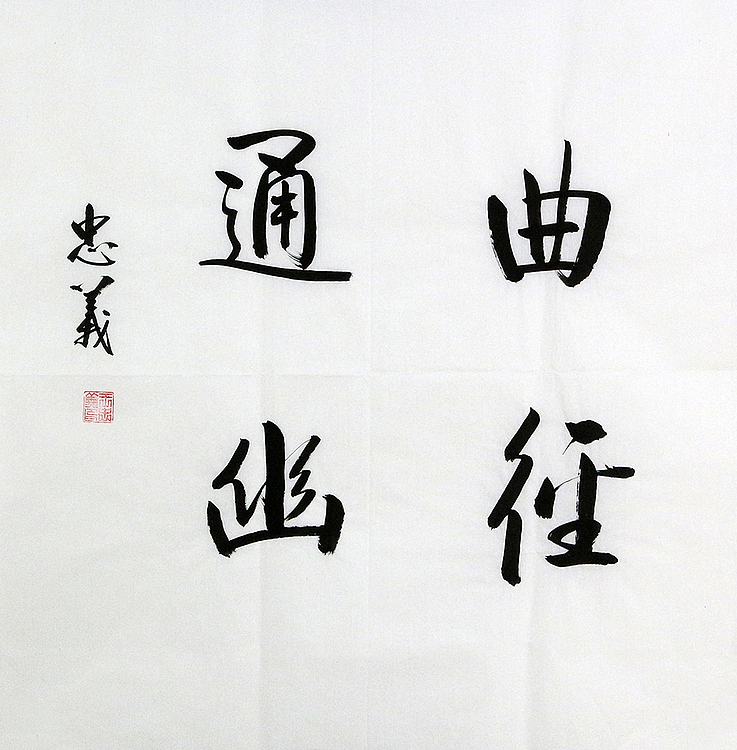 曲径
通幽
忠義